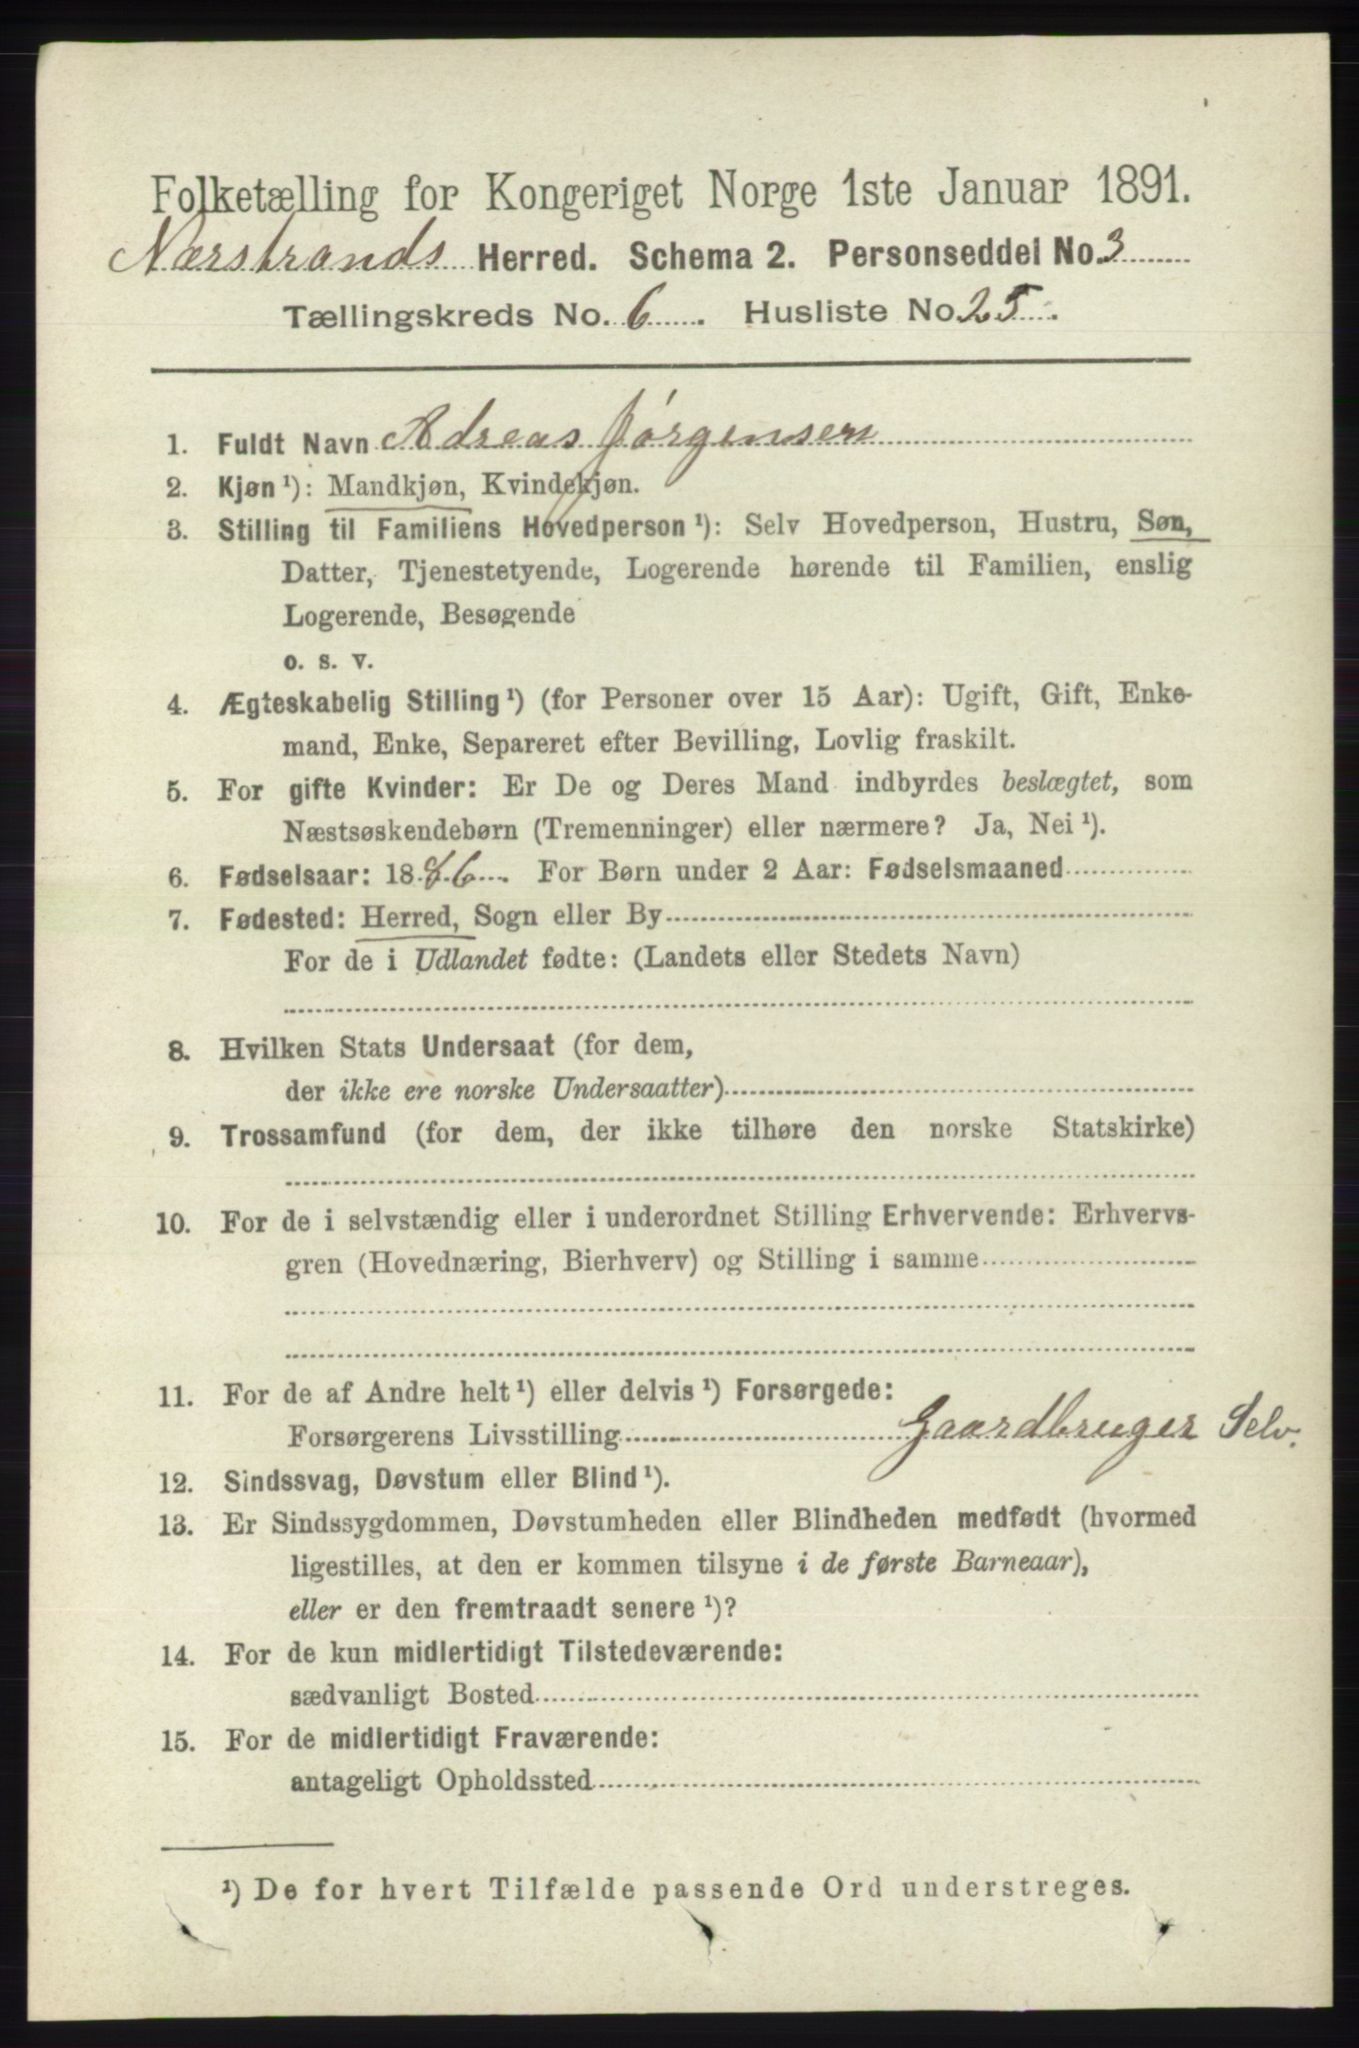 Folketælling for Kongeriget Norge 1ste Januar 1891.
Nærstrands Herred. Schema 2. Personseddel No. 3
Tællingskreds No. 6 . Husliste No. 25 .
1. Fuldt Navn Adreas Jørgensen
2. Kjøn ¹): Mandkjøn, Kvindekjøn.
3. Stilling til Familiens Hovedperson ¹): Selv Hovedperson, Hustru, Søn,
Datter, Tjenestetyende, Logerende hørende til Familien, enslig
Logerende, Besøgende
o. s. v.
4. Ægteskabelig Stilling ¹) (for Personer over 15 Aar): Ugift, Gift, Enke-
mand, Enke, Separeret efter Bevilling, Lovlig fraskilt.
5. For gifte Kvinder: Er De og Deres Mand indbyrdes beslægtet, som
Næstsøskendebørn (Tremenninger) eller nærmere? Ja, Nei ¹).
6. Fødselsaar: 1886. For Børn under 2 Aar: Fødselsmaaned
7. Fødested: Herred, Sogn eller By
For de i Udlandet fødte: (Landets eller Stedets Navn)
8. Hvilken Stats Undersaat (for dem,
der ikke ere norske Undersaatter)
9. Trossamfund (for dem, der ikke tilhøre den norske Statskirke)
10. For de i selvstændig eller i underordnet Stilling Erhvervende: Erhvervs-
gren (Hovednæring, Bierhverv) og Stilling i samme
11. For de af Andre helt ¹) eller delvis ¹) Forsørgede:
Forsørgerens Livsstilling Gaardbruger Selv.
12. Sindssvag, Døvstum eller Blind ¹).
13. Er Sindssygdommen, Døvstumheden eller Blindheden medfødt (hvormed
ligestilles, at den er kommen tilsyne i de første Barneaar),
eller er den fremtraadt senere ¹)?
14. For de kun midlertidigt Tilstedeværende:
sædvanligt Bosted
15. For de midlertidigt Fraværende:
antageligt Opholdssted
¹) De for hvert Tilfælde passende Ord understreges.